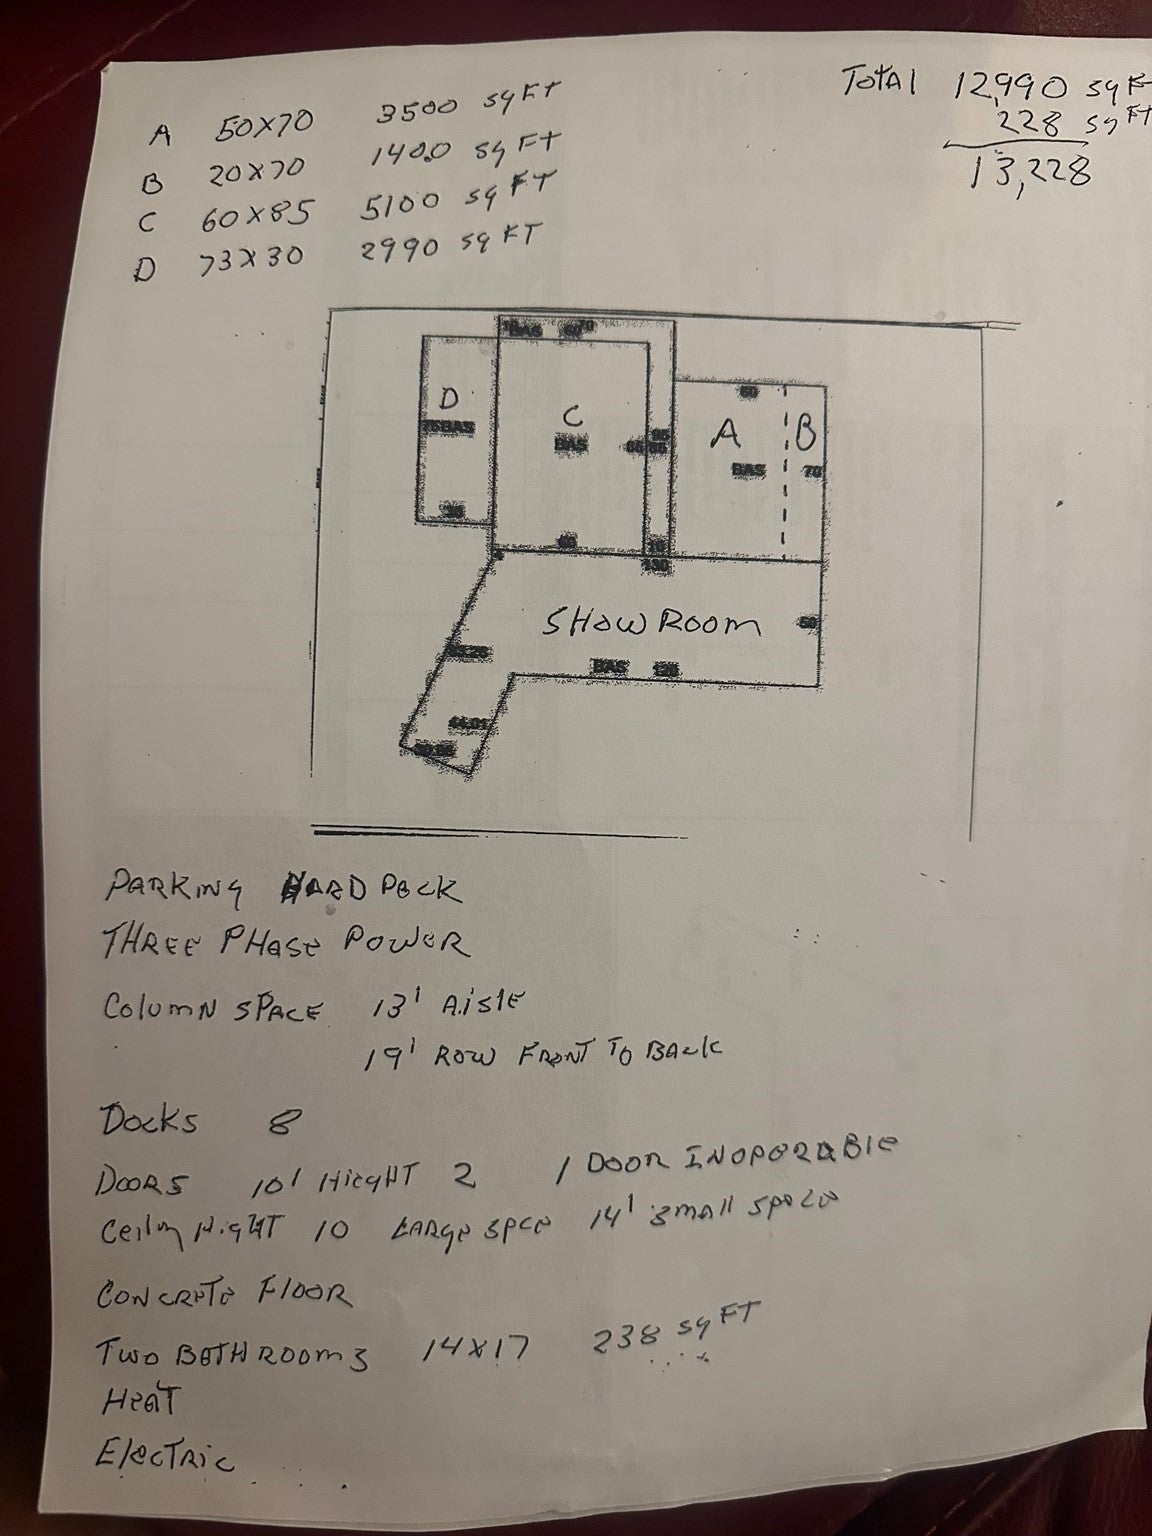 A 50X70 3500 sqFT
B 20X70 1400 sqFT
C 60X85 5100 sqFT
D 73X30 2990 sqFT
TOTAl 12,990 sq Ft
228 sq FT
13,228
BAS
D
C
A B
BAS
BAS
BAS 70
60
SHOW ROOM
BAS
PARKING HARD PACK
THREE PHASE POWER
COLUMN SPACE 13' AISLE
19' ROW FRONT TO BACK
DOCKS 8
DOORS 10' HIEGHT 2 1 DOOR INOPERABLE
10 LARGE 14' SMALL
CONCRETE FLOOR
TWO BATHROOMS 14X17 238 sqFT
HEAT
ELECTRIC